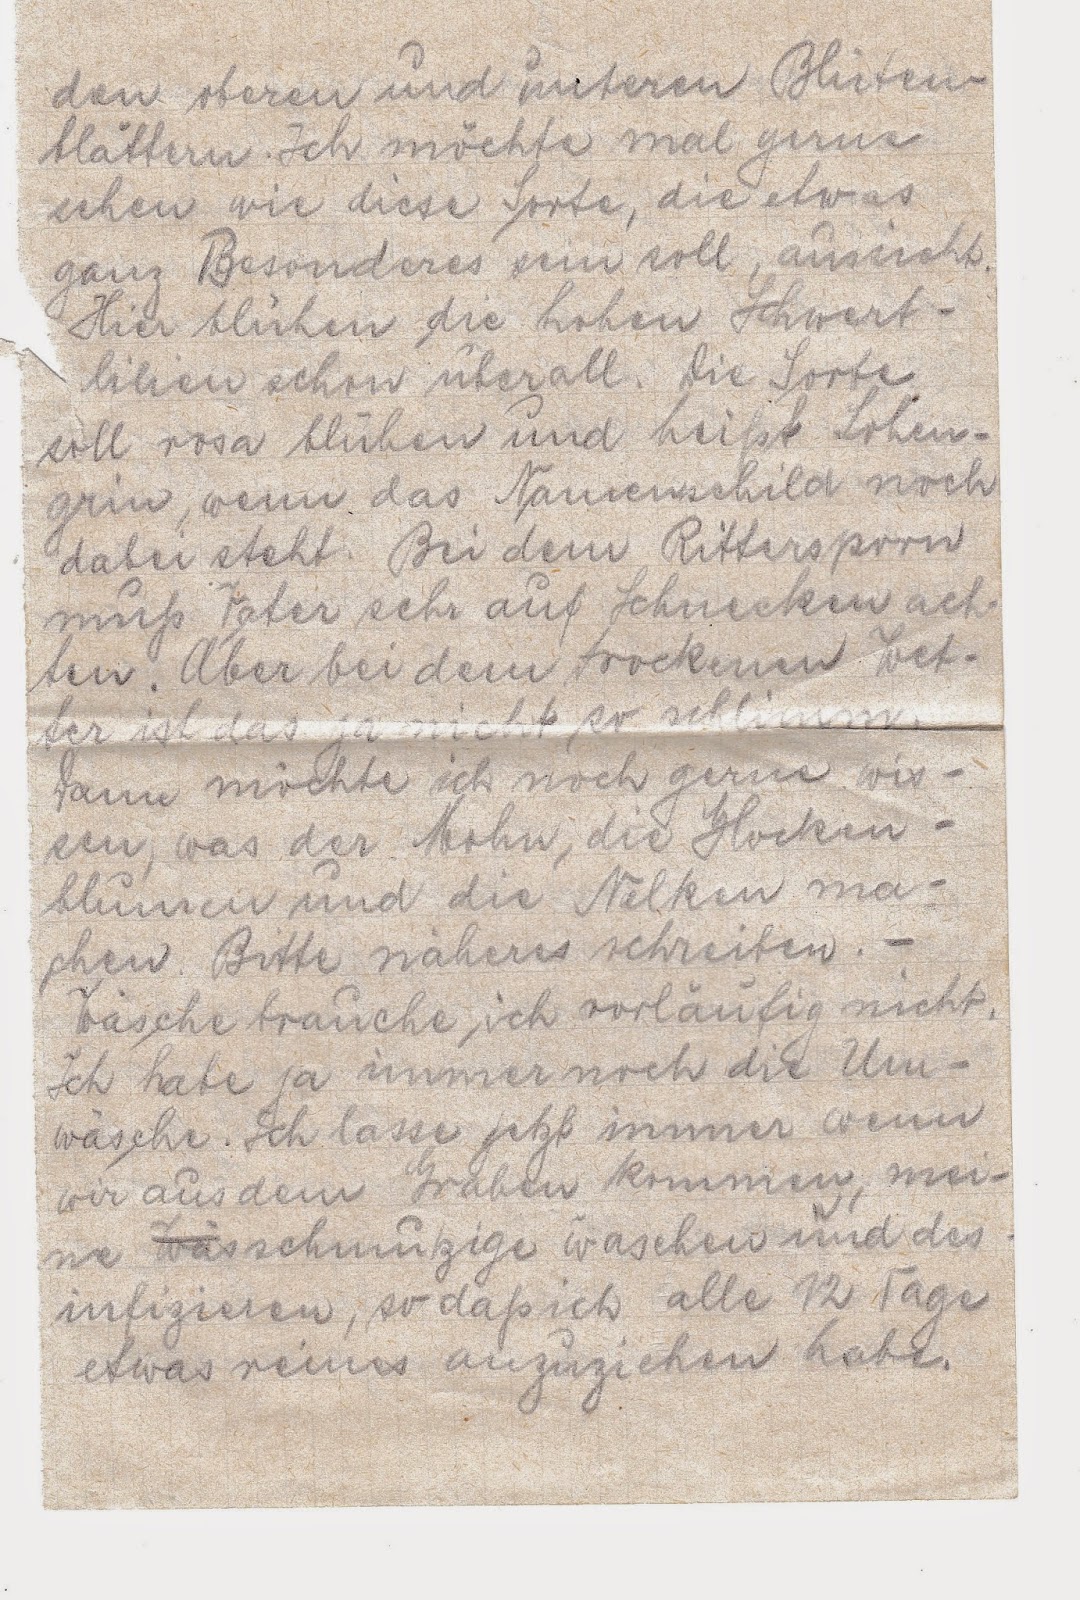 den oberen und unteren Blüten-
blättern. Ich möchte mal gerne
sehen wie diese Sorte, die etwas
ganz Besonderes sein soll, aussieht.
Hier blühen die hohen Schwert-
lilien schon überall. Die Sorte
soll rosa blühen und heißt Lohen-
grin, wenn das Namenschild noch
dabei steht. Bei dem Rittersporn
muß Vater sehr auf Schnecken ach-
ten. Aber bei dem trockenen Wet-
ter ist das ja nicht so schlimm.
Dann möchte ich noch gerne wis-
sen, was der Mohn, die Glocken-
blumen und die Nelken ma-
chen. Bitte näheres schreiben. –
Wäsche brauche ich vorläufig nicht.
Ich habe ja immer noch die Um-
wäsche. Ich lasse jetzt immer wenn
wir aus dem Graben kommen, mei-
ne Wäs schmutzige waschen und des-
infizieren, so daß ich alle 12 Tage
etwas reines anzuziehen habe.